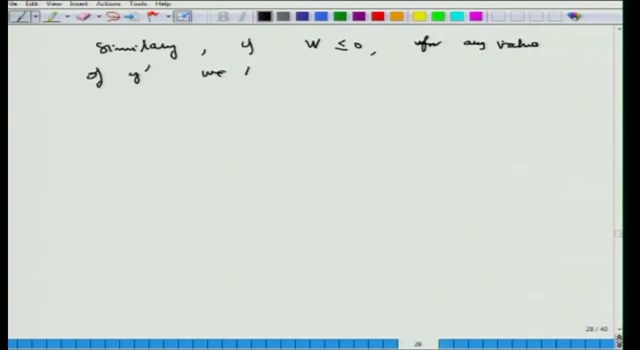 File Edit View Insert Actions Tools Help
Similary , if W ≤ 0 , for any value
of y' we
28 / 40
28